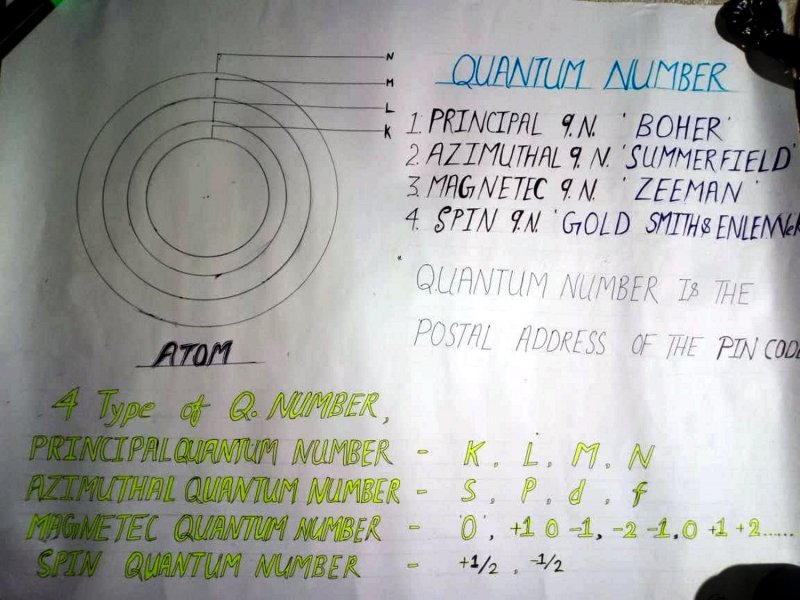 N
M
L
K
ATOM
QUANTUM NUMBER
1. PRINCIPAL q.N. 'BOHER'
2. AZIMUTHAL q.N. 'SUMMERFIELD'
3. MAGNETEC q.N. 'ZEEMAN'
4. SPIN q.N. 'GOLD SMITH &
QUANTUM NUMBER IS THE
POSTAL ADDRESS OF THE PIN CODE
4 Type of Q. NUMBER,
PRINCIPAL QUANTUM NUMBER - K, L, M, N
AZIMUTHAL QUANTUM NUMBER - S, P, d, f
MAGNETEC QUANTUM NUMBER - '0', +1 0 -1, -2 -1,0 +1 +2......
SPIN QUANTUM NUMBER - +1/2, -1/2